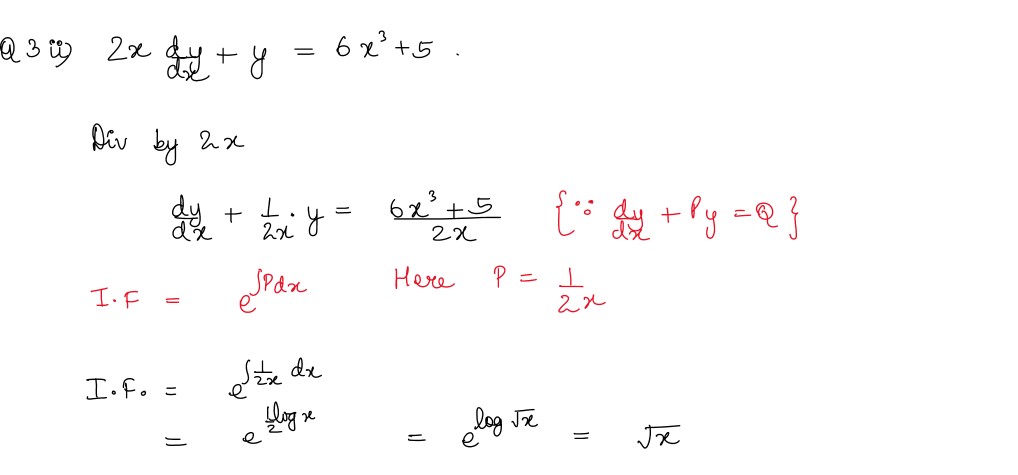 Q 3 ii) 2x dy/dx + y = 6x³ + 5 .
Div by 2x
dy/dx + 1/2x . y = 6x³ + 5/2x {∵ dy/dx + Py = Q}
I.F = e^∫Pdx Here P = 1/2x
I.F. = e^∫1/2x dx
= e^1/2 log x = e^log √x = √x